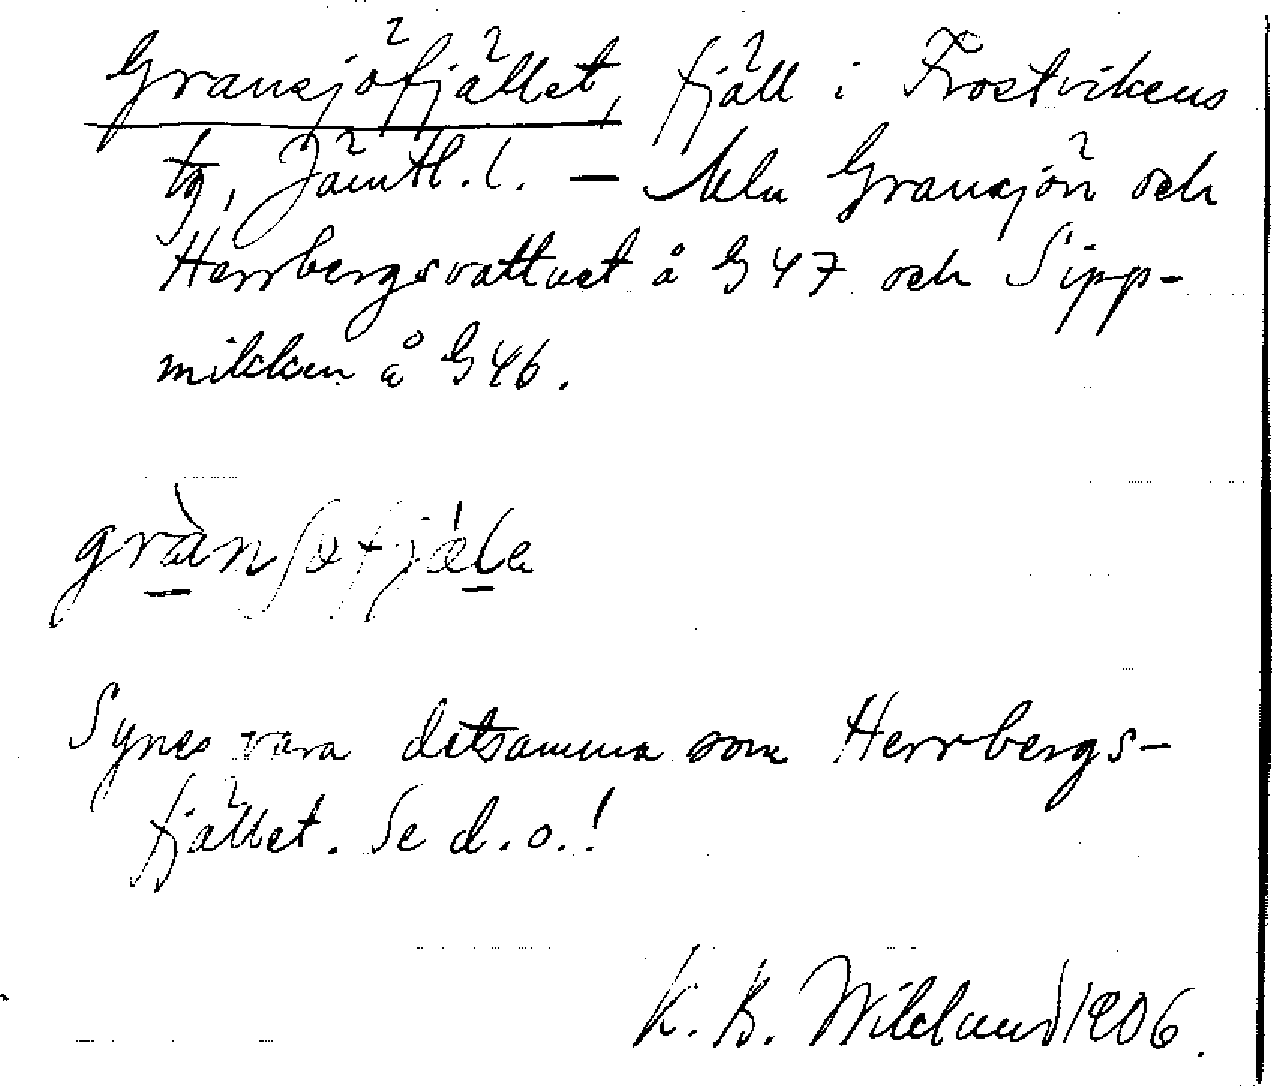 Gransjöfjället, fjäll i Frostvikens
tg, Jämtl. l. — Mln Gransjön och
Herrbergsvattnet å G 47 och Sipp-
mikken å G 46.
grànʃøfjæ̍la
Synes vara detsamma som Herrbergs-
fjället. Se d. o.!
K. B. Wiklund 1906.